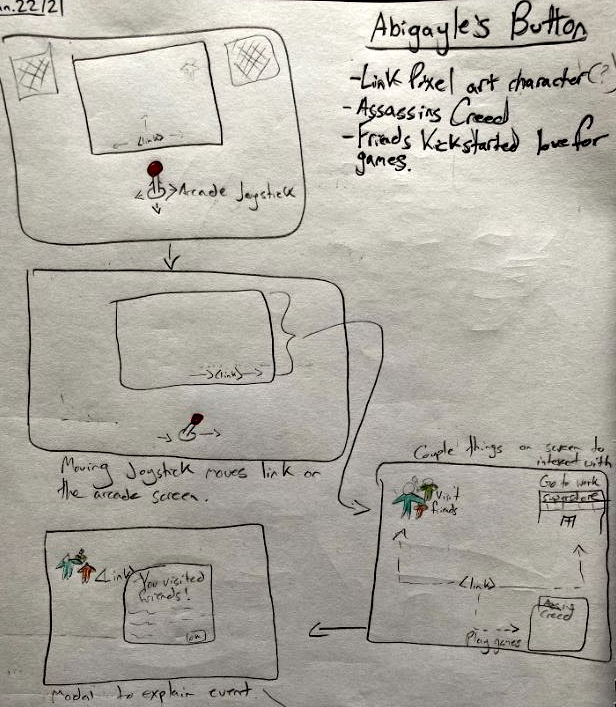 an.22/21
Abigayle's Button
-Link Pixel art character(?)
-Assassins Creed
-Friends Kickstarted love for
games.
<link>
Arcade Joystick
<link>
Moving Joystick moves link on
the arcade screen.
Couple things on screen to
interact with
Visit
friends
Go to work
Superstore
<link>
Creed
Play games
<Link>
You visited
friends!
OK
Modal to explain event.